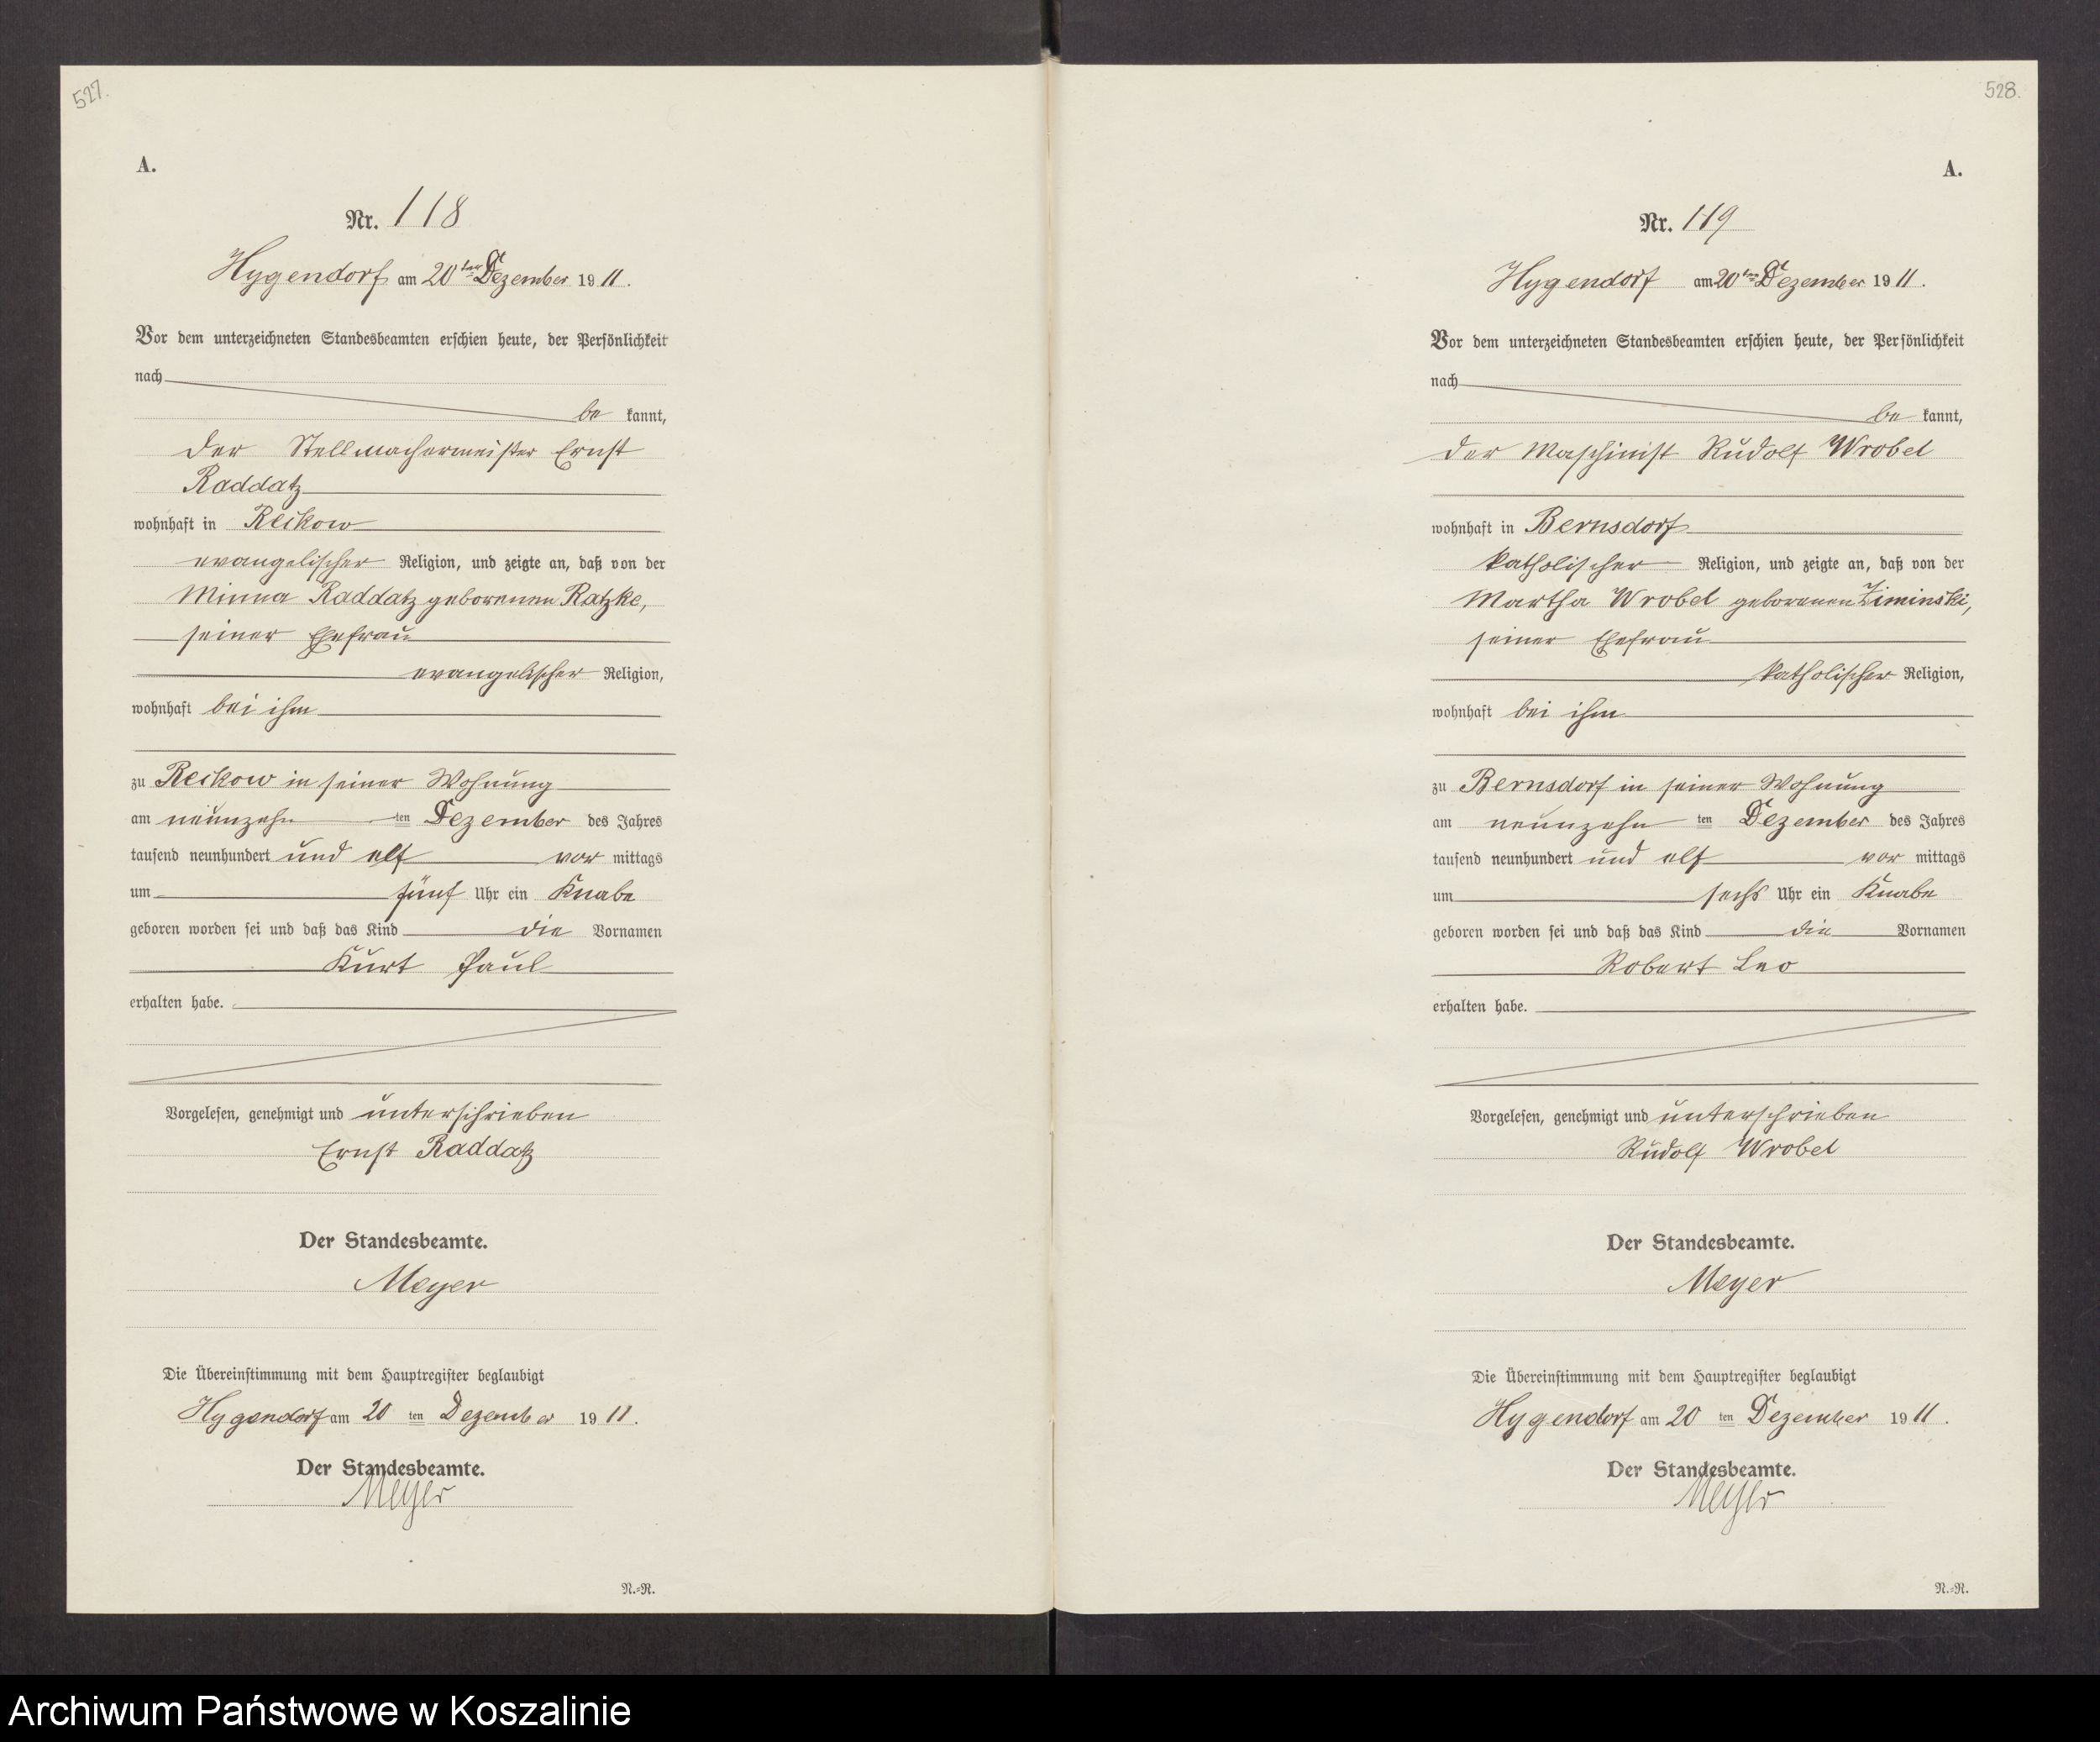 527.
A.
Nr. 118
Hygendorf am 20ten Dezember 1911.
Vor dem unterzeichneten Standesbeamten erschien heute, der Persönlichkeit
nach
be kannt,
der Stellmachermeister Ernst
Raddatz
wohnhaft in Reikow
evangelischer Religion, und zeigte an, daß von der
Minna Raddatz geborenen Ratzke,
seiner Ehefrau
evangelischer Religion,
wohnhaft bei ihm
zu Reikow in seiner Wohnung
am neunzehn ten Dezember des Jahres
tausend neunhundert und elf vor mittags
um fünf Uhr ein Knabe
geboren worden sei und daß das Kind die Vornamen
Kurt Paul
erhalten habe.
Vorgelesen, genehmigt und unterschrieben
Ernst Raddatz
Der Standesbeamte.
Meyer
Die Übereinstimmung mit dem Hauptregister beglaubigt
Hygendorf am 20 ten Dezember 1911.
Der Standesbeamte.
Meyer
N.=R.
528.
A.
Nr. 119
Hygendorf am 20ten Dezember 1911.
Vor dem unterzeichneten Standesbeamten erschien heute, der Persönlichkeit
nach
be kannt,
der Maschinist Rudolf Wrobel
wohnhaft in Bernsdorf
katholischer Religion, und zeigte an, daß von der
Martha Wrobel geborenen Ziminski,
seiner Ehefrau
katholischer Religion,
wohnhaft bei ihm
zu Bernsdorf in seiner Wohnung
am neunzehn ten Dezember des Jahres
tausend neunhundert und elf vor mittags
um sechs Uhr ein Knabe
geboren worden sei und daß das Kind die Vornamen
Robert Leo
erhalten habe.
Vorgelesen, genehmigt und unterschrieben
Rudolf Wrobel
Der Standesbeamte.
Meyer
Die Übereinstimmung mit dem Hauptregister beglaubigt
Hygendorf am 20 ten Dezember 1911.
Der Standesbeamte.
Meyer
N.=R.
Archiwum Państwowe w Koszalinie